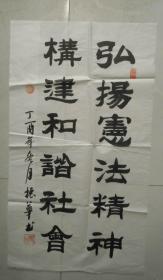 弘揚憲法精神
構建和諧社會
丁酉年冬月振華书